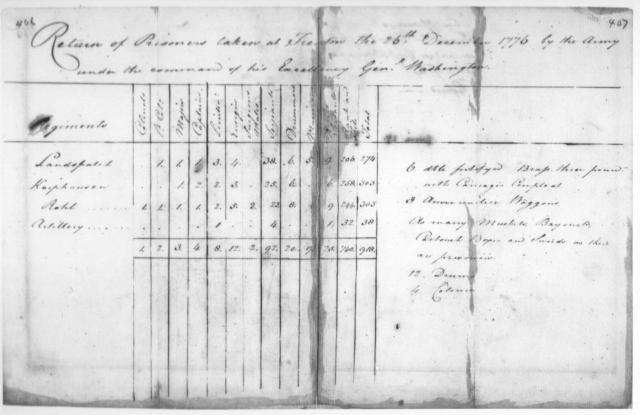 406
407
Return of Prisoners taken at Trenton the 26th December 1776 by the Army
under the command of his Excellency Genl. Washington.
Regiments Colonels Majors Captains Surgeons Mates Serjeants Drummers Total
Landspatch 1. 1. 3. 4. 38. 6. 5. 9. 206. 274
Knyphausen 1 2. 2. 3. 25. 6. 258. 303
Rohl 1. 1. 1. 1. 2. 5. 2. 25. 8. 9. 244. 303
Artillery 1 4. 1. 32 38
1. 2. 3. 4. 8. 12. 2. 92. 20. 9. 25. 740. 918.
6 dble fortifyed Brass three pound
with Carriages Compleat
3 Ammunition Waggons
As many Muskets Bayonets
Cartouch Boxes and Swords as there
are prisoners
12. Drums
4 Colours